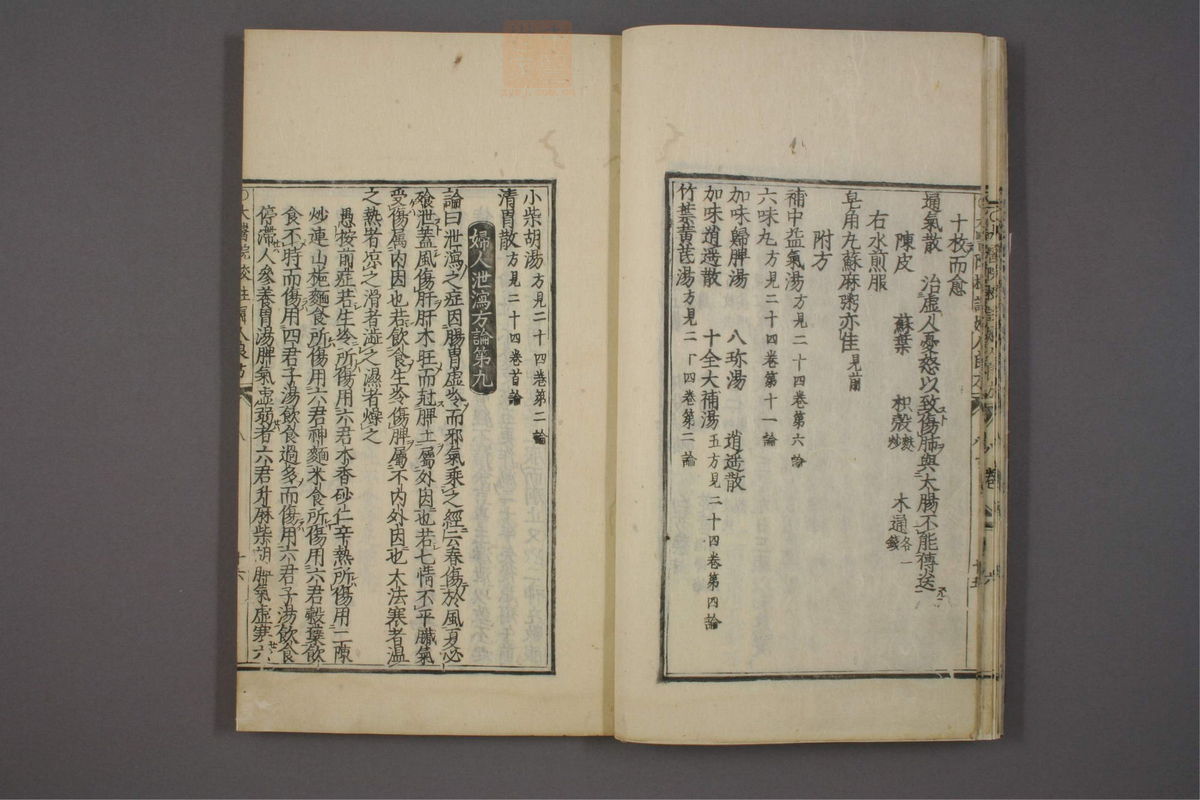 十枚而愈
通氣散 治虛人憂怒以致傷肺與大腸不能傳送
陳皮 蘇葉 枳殼麩炒 木通各一錢
右水煎服
皂角丸蘇麻粥亦佳見前
附方
補中益氣湯方見二十四卷第六論
六味丸方見二十四卷第十一論
加味歸脾湯 八珍湯 逍遥散
加味逍遥散 十全大補湯五方見二十四卷第四論
竹葉黄芪湯方見二十四卷第二論
小柴胡湯方見二十四卷第二論
清胃散方見二十四卷首論
婦人泄瀉方論第九
論曰泄瀉之症因腸胃虛冷而邪氣乘之經云春傷於風夏必
飧泄蓋風傷肝肝木旺而尅脾土屬外因也若七情不平臟氣
受傷属内因也若飲食生冷傷脾屬不内外因也大法寒者温
之熱者凉之滑者澁之濕者燥之
愚按前症若生冷所傷用六君木香砂仁辛熱所傷用二陳
炒連山梔麵食所傷用六君神麯米食所傷用六君穀蘖飲
食不時而傷用四君子湯飲食過多而傷用六君子湯飲食
停滯人參養胃湯脾氣虛弱者六君升麻柴胡脾氣虛寒六
太醫院校註婦人良方 八 十六